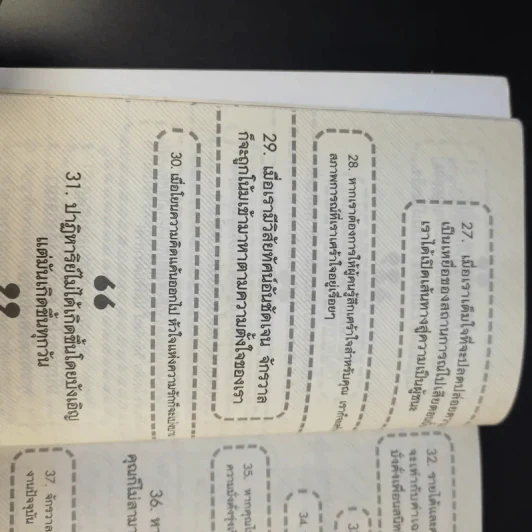 27. เมื่อเราเต็มใจที่จะปลดปล่อย
เป็นเหยื่อของสถานการณ์ไปเสีย
เราได้เปิดเส้นทางสู่ความเป็นผู้ชนะ
28. หากเราต้องการให้ผู้คนรู้สึกเศร้าใจสำหรับคุณ
สภาพการณ์ที่เราเศร้าใจอยู่เรื่อยๆ
29. เมื่อเรามีวิสัยทัศน์อันชัดเจน จักรวาล
ก็จะถูกโน้มเข้ามาหาตามความตั้งใจของเรา
30. เมื่อโยนความคิดแค้นออกไป หัวใจแห่งความรักก็จะ
“
31. ปาฏิหาริย์ไม่ได้เกิดขึ้นโดยบังเอิญ
แต่มันเกิดขึ้นทุกวัน
”
32. รายได้และ
จะเท่ากับ
34.
35. หากคุณ
36.
คุณก็ไม่สามา
37. จักรวาล
งานปัจจุบัน